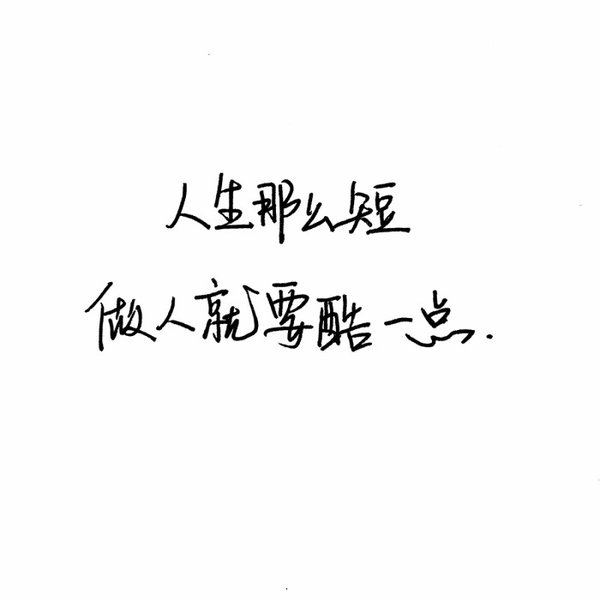 人生那么短
做人就要酷一点.